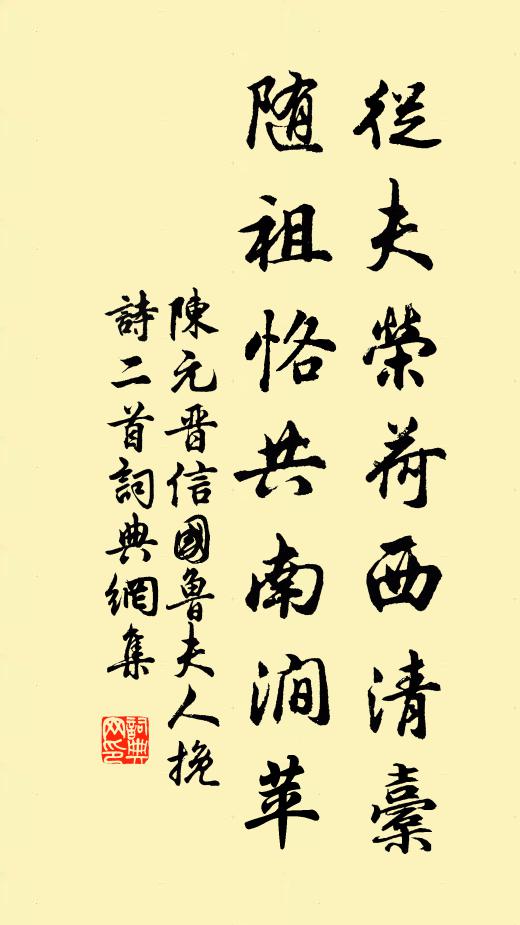 從夫榮荷西清橐
随祖恪共南澗苹
陳元晋信國魯夫人挽
詩二首詞典網集
詞典网印